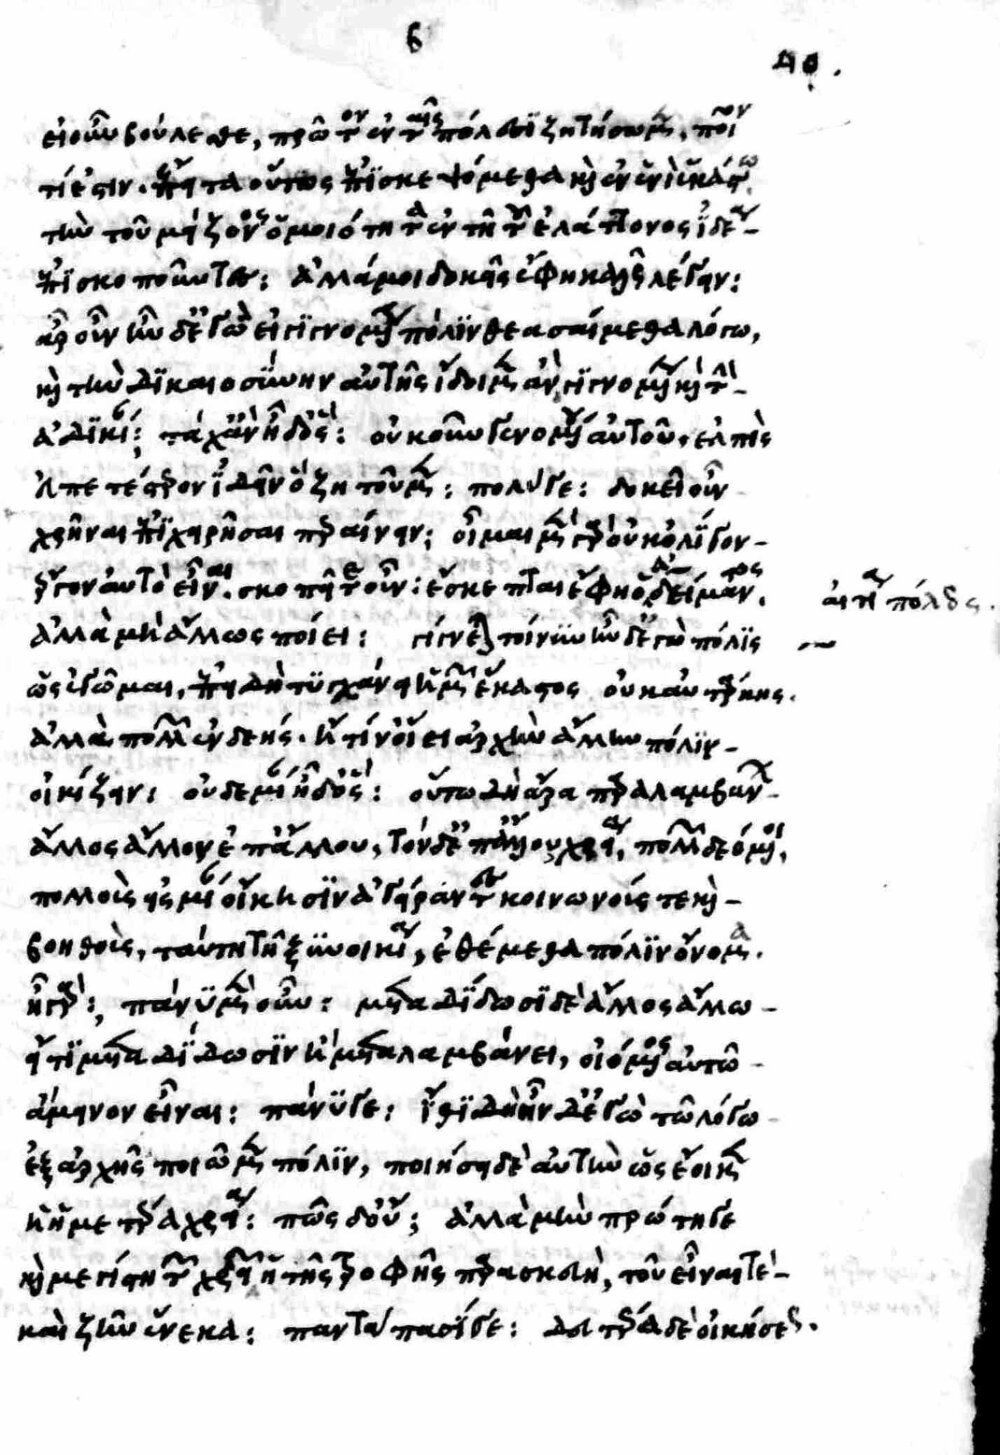 β
40.
εἰ οὖν βούλεσθε, πρῶτον ἐν ταῖς πόλεσϊ ζητήσωμεν, ποῖόν
τί ἐστιν. ἔπειτα οὕτως ἐπϊσκεψόμεθα καὶ ἐν ἑνὶ ἑκάστω
τὴν τοῦ μείζονος ὁμοιότητα ἐν τῆ τοῦ ἐλάττονος ἰδέα
ἐπϊσκοποῦντες: ἀλλά μοι δοκεῖς ἔφη καλῶς λέγειν:
ἆρ' οὖν ἦν δ' ἐγὼ εἰ γϊγνομένην πόλϊν θεασαίμεθα λόγω,
καὶ τὴν δϊκαιοσύνην αὐτῆς ἴδοιμεν ἂν γϊγνομένην καὶ τὴν
ἀδϊκίαν; τάχ' ἂν ἦ δ' ὅς: οὐκοῦν γενομένου αὐτοῦ, ἐλπὶς
εὐπετέστερον ἰδεῖν ὃ ζητοῦμεν: πολύ γε: δοκεῖ οὖν
χρῆναι ἐπϊχειρῆσαι περαίνειν; οἶμαι μὲν γὰρ οὐκ ὀλίγον
ἔργον αὐτὸ εἶναι. σκοπεῖτε οὖν: ἔσκεπται ἔφη ὁ ἀδείμαντος.
αἰτία πόλεως.
ἀλλὰ μὴ ἄλλως ποίει: γίγνεται τοίνυν ἦν δ' ἐγὼ πόλϊς
ὡς ἐγῶμαι, ἐπειδὴ τυγχάνει ἡμῶν ἕκαστος οὐκ αὐτάρκης.
ἀλλὰ πολλῶν ἐνδεής. ἢ τίν' οἴει ἀρχὴν ἄλλην πόλϊν
οἰκίζειν: οὐδεμίαν ἦ δ' ὅς: οὕτω δὴ ἄρα παραλαμβάνων
ἄλλος ἄλλον ἐπ' ἄλλου, τὸν δ' ἐπ' ἄλλου χρεία, πολλῶν δεόμενοι,
πολλοὺς εἰς μίαν οἴκησϊν ἀγείραντες κοινωνούς τε καὶ
βοηθοὺς, ταύτη τῆ ξυνοικία, ἐθέμεθα πόλϊν ὄνομα.
ἦ γάρ:, πάνϋ μὲν οὖν: μεταδϊδωσϊ δὲ ἄλλος ἄλλω
εἴ τϊ μεταδϊδωσϊν ἢ μεταλαμβάνει, οἰόμενος αὐτῶ
ἄμεινον εἶναι: πάνϋ γε: ἴθϊ δὴ ἦν δ' ἐγὼ τῶ λόγω
ἐξ ἀρχῆς ποιῶμεν πόλϊν, ποιήσει δὲ αὐτὴν ὡς ἔοικεν
ἡ ἡμετέρα χρεία: πῶς δ' οὔ; ἀλλὰ μὴν πρώτη γε
καὶ μεγίστη τῶν χρειῶν ἡ τῆς τροφῆς παρασκευὴ, τοῦ εἶναι τὲ
καὶ ζῆν ἕνεκα: πανταπασί γε: δευτέρα δὲ οἰκήσεως.